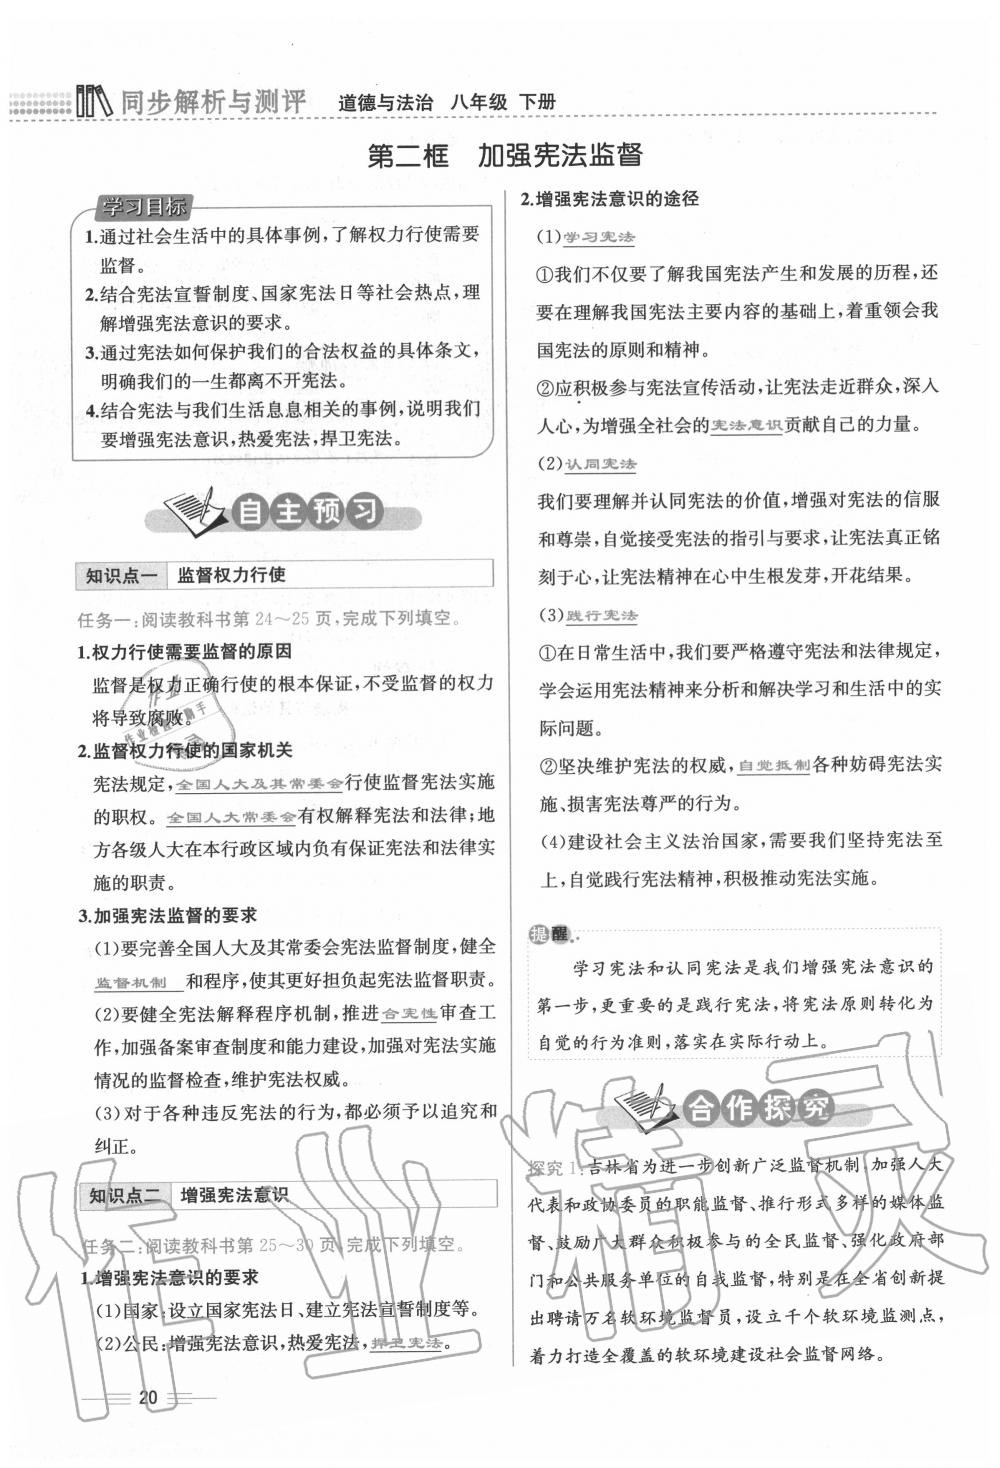 同步解析与测评 道德与法治 八年级 下册
第二框 加强宪法监督
学习目标
1.通过社会生活中的具体事例,了解权力行使需要
监督。
2.结合宪法宣誓制度、国家宪法日等社会热点,理
解增强宪法意识的要求。
3.通过宪法如何保护我们的合法权益的具体条文,
明确我们的一生都离不开宪法。
4.结合宪法与我们生活息息相关的事例,说明我们
要增强宪法意识,热爱宪法,捍卫宪法。
自主预习
知识点一 监督权力行使
任务一:阅读教科书第 24～25 页,完成下列填空。
1.权力行使需要监督的原因
监督是权力正确行使的根本保证,不受监督的权力
将导致腐败。
2.监督权力行使的国家机关
宪法规定,全国人大及其常委会行使监督宪法实施
的职权。全国人大常委会有权解释宪法和法律;地
方各级人大在本行政区域内负有保证宪法和法律实
施的职责。
3.加强宪法监督的要求
(1)要完善全国人大及其常委会宪法监督制度,健全
监督机制 和程序,使其更好担负起宪法监督职责。
(2)要健全宪法解释程序机制,推进合宪性审查工
作,加强备案审查制度和能力建设,加强对宪法实施
情况的监督检查,维护宪法权威。
(3)对于各种违反宪法的行为,都必须予以追究和
纠正。
知识点二 增强宪法意识
任务二:阅读教科书第 25～30 页,完成下列填空。
1.增强宪法意识的要求
(1)国家:设立国家宪法日、建立宪法宣誓制度等。
(2)公民:增强宪法意识,热爱宪法,捍卫宪法。
20
2.增强宪法意识的途径
(1)学习宪法
①我们不仅要了解我国宪法产生和发展的历程,还
要在理解我国宪法主要内容的基础上,着重领会我
国宪法的原则和精神。
②应积极参与宪法宣传活动,让宪法走近群众,深入
人心,为增强全社会的宪法意识贡献自己的力量。
(2)认同宪法
我们要理解并认同宪法的价值,增强对宪法的信服
和尊崇,自觉接受宪法的指引与要求,让宪法真正铭
刻于心,让宪法精神在心中生根发芽,开花结果。
(3)践行宪法
①在日常生活中,我们要严格遵守宪法和法律规定,
学会运用宪法精神来分析和解决学习和生活中的实
际问题。
②坚决维护宪法的权威,自觉抵制各种妨碍宪法实
施、损害宪法尊严的行为。
(4)建设社会主义法治国家,需要我们坚持宪法至
上,自觉践行宪法精神,积极推动宪法实施。
提醒
学习宪法和认同宪法是我们增强宪法意识的
第一步,更重要的是践行宪法,将宪法原则转化为
自觉的行为准则,落实在实际行动上。
合作探究
探究 1:吉林省为进一步创新广泛监督机制,加强人大
代表和政协委员的职能监督、推行形式多样的媒体监
督、鼓励广大群众积极参与的全民监督、强化政府部
门和公共服务单位的自我监督,特别是在全省创新提
出聘请万名软环境监督员,设立千个软环境监测点,
着力打造全覆盖的软环境建设社会监督网络。
作业精灵